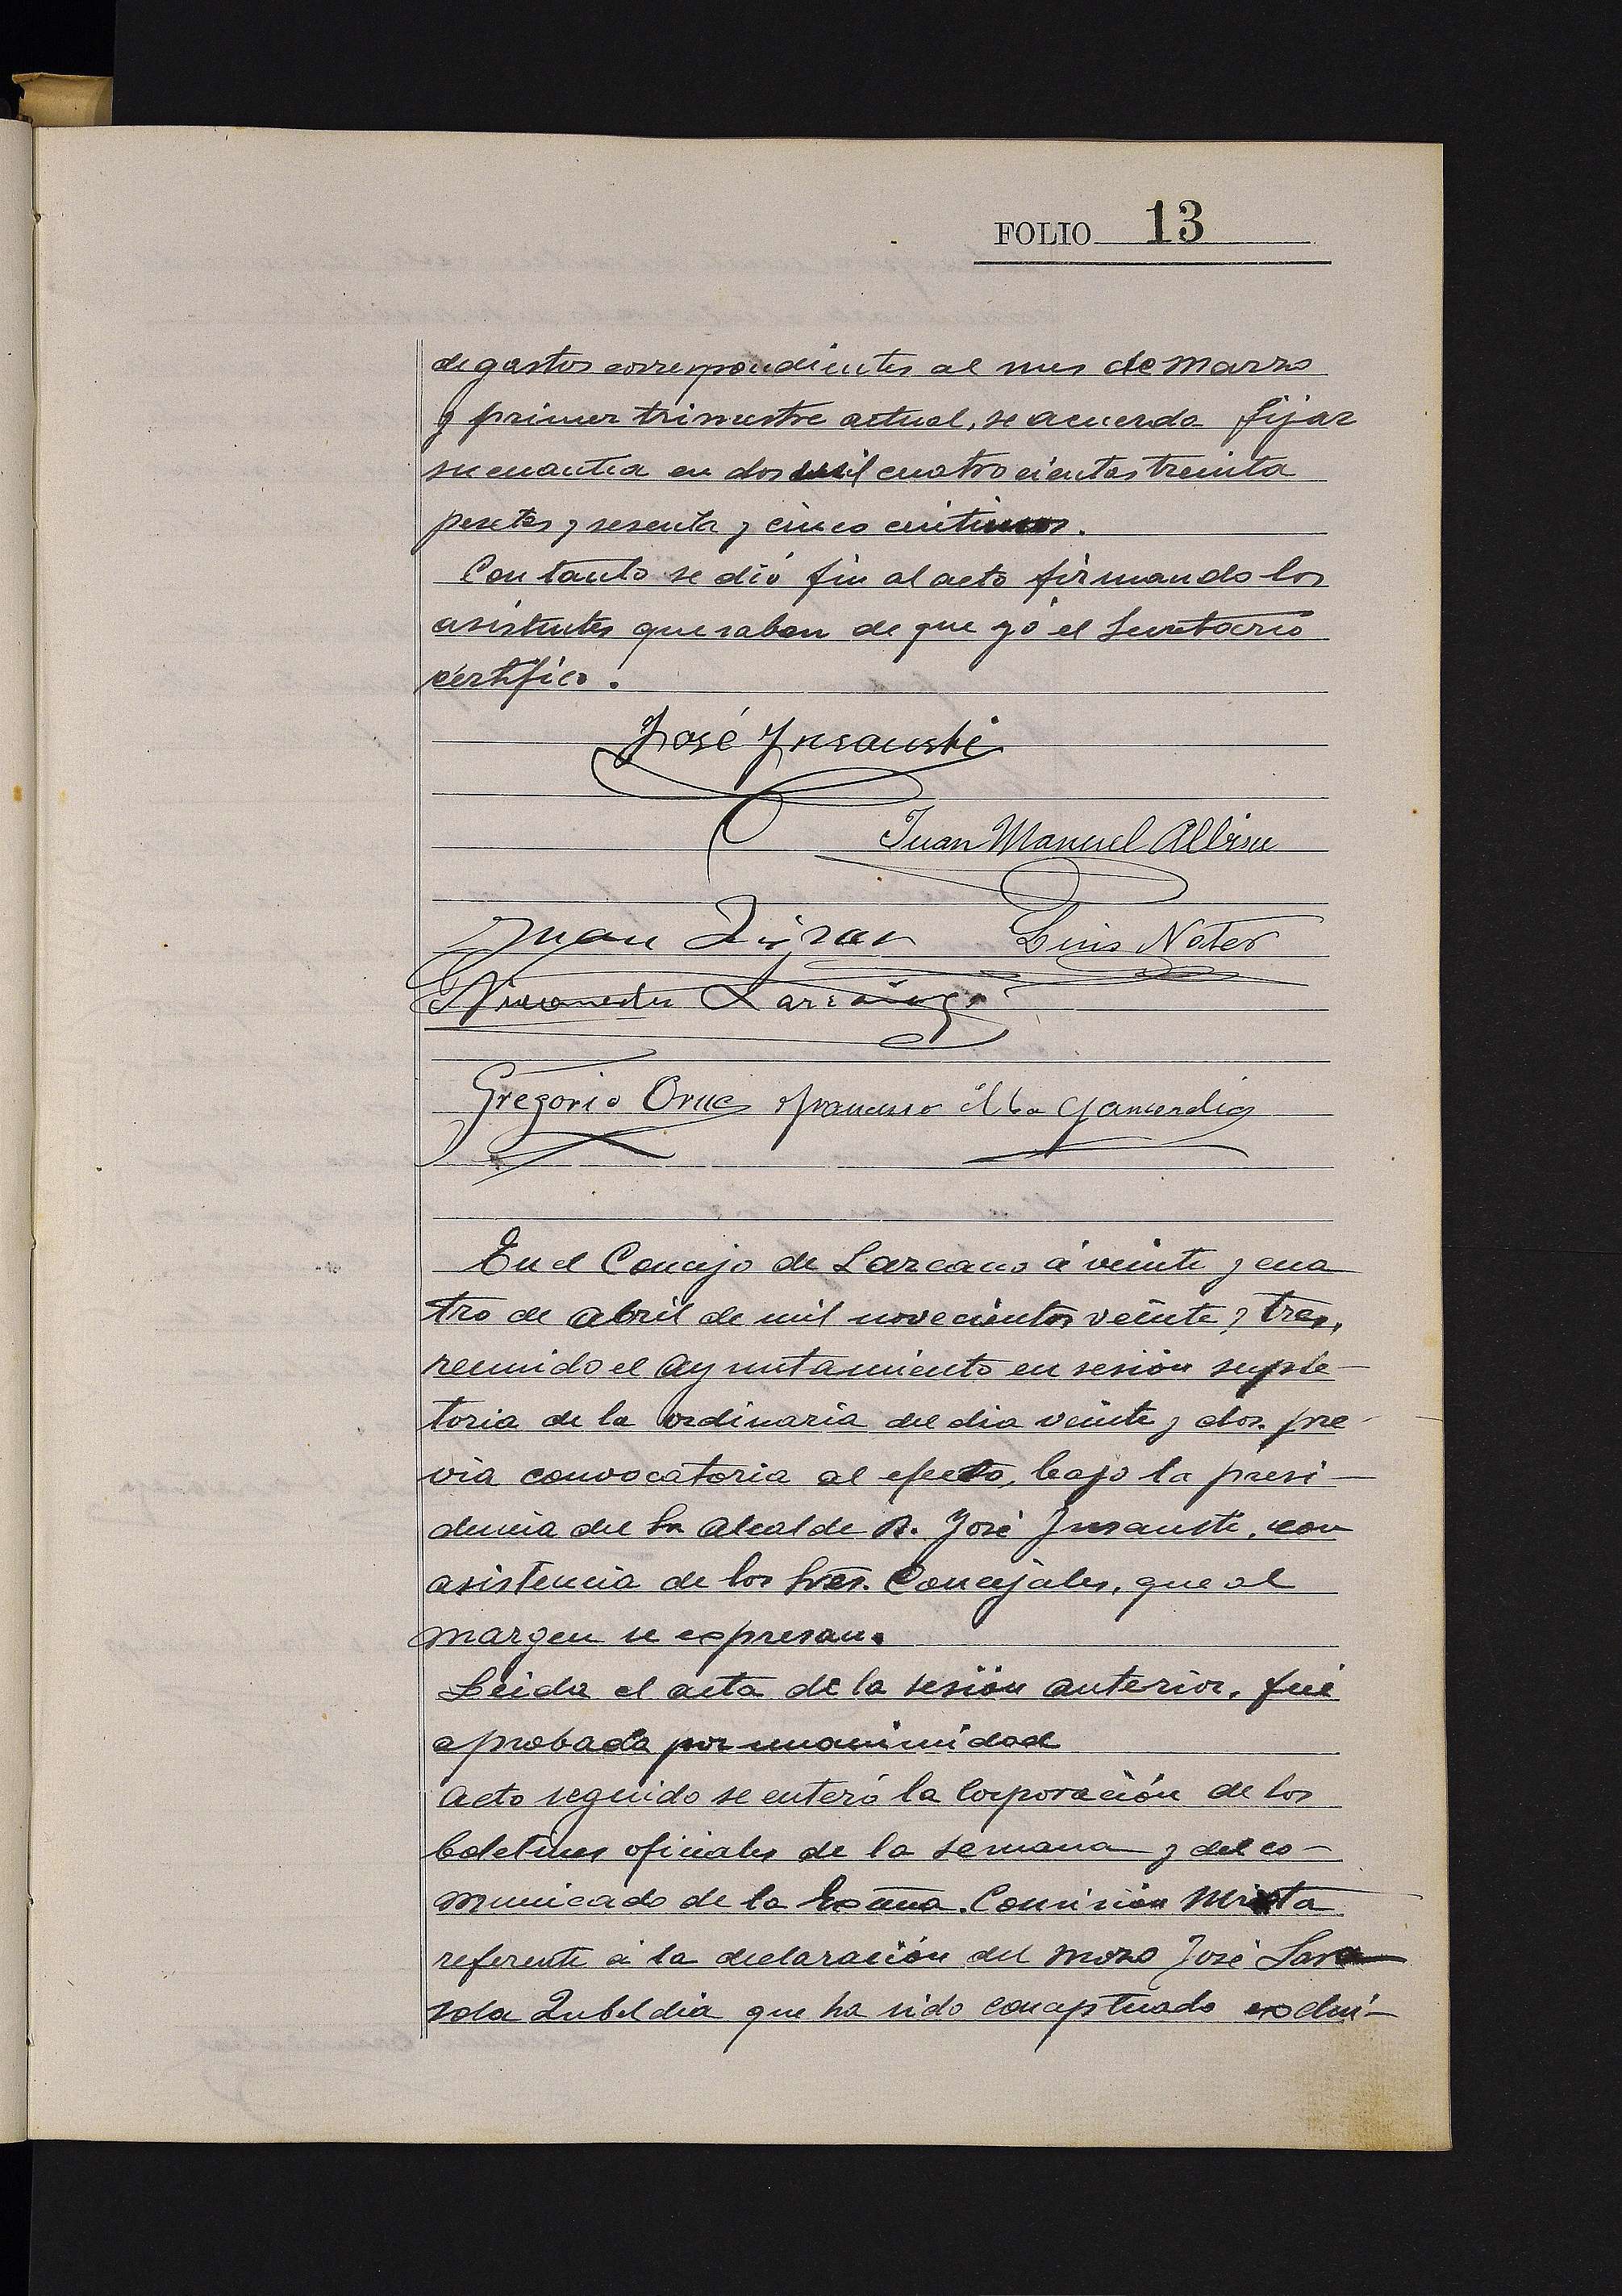 FOLIO 13
de gastos correspondientes al mes de Marzo
y primer trimestre actual, se acuerda fijar
su cuantia en dos mil cuatrocientas treinta
pesetas y sesenta y cinco centimos.
Con tanto se dió fin al acto firmando los
asistentes que saben de que yó el Secretario
certifico.
José Ynsausti
Juan Manuel Albisu
Juan
Luis
Gregorio
Garmendia
En el Concejo de Lazcano á veinte y cua
tro de Abril de mil novecientos veinte y tres,
reunido el Ayuntamiento en sesión suple-
toria de la ordinaria del dia veinte y dos. pre-
via convocatoria al efecto, bajo la presi-
dencia del Sr Alcalde D. José Insausti, con
asistencia de los Sres. Concejales, que al
margen se expresan.
Leida el acta de la sesión anterior, fué
aprobada por unanimidad
Acto seguido se enteró la Corporación de los
boletines oficiales de la semana y del co-
municado de la Excma. Comisión Mixta
referente á la declaración del mozo José Lasa
sola Zubeldia que ha sido conceptuado exclui-